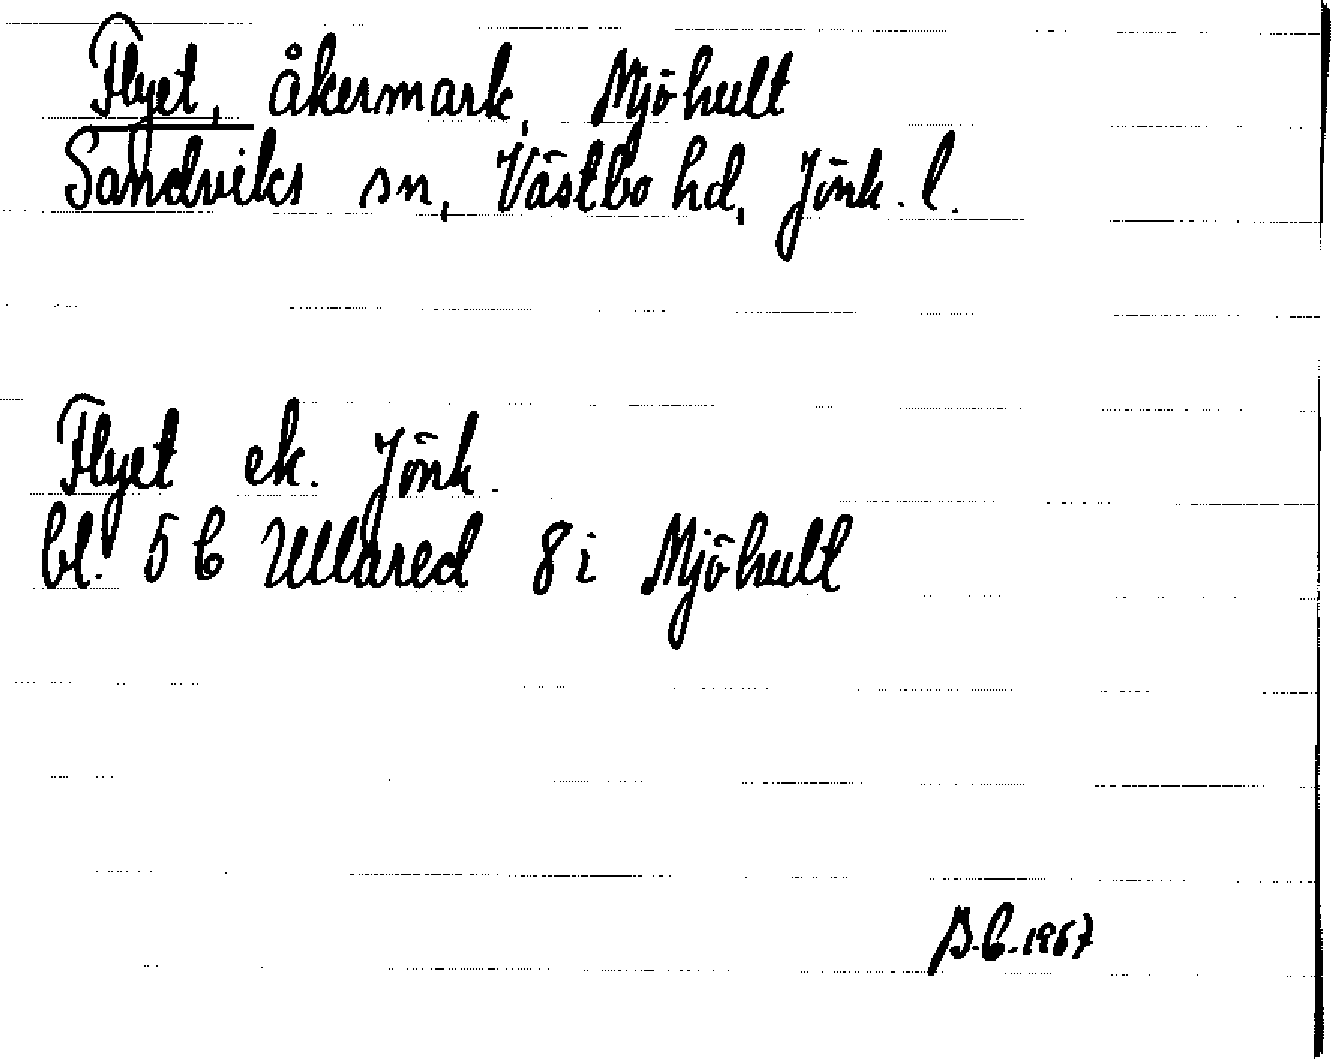 Flyet, åkermark, Mjöhult
Sandviks sn, Västbo hd, Jönk. l.
Flyet ek. Jönk.
bl. 5 C Ullared 8 i Mjöhult
B.C. 1967